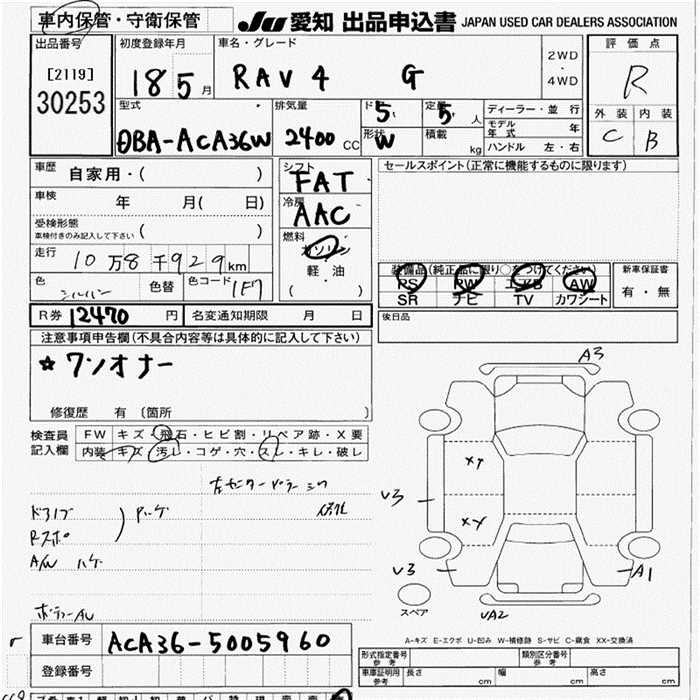 車内保管・守衛保管
JU 愛知 出品申込書 JAPAN USED CAR DEALERS ASSOCIATION
出品番号
[2119]
30253
初度登録年月
18 5 月
車名・グレード
RAV4 G
2WD
・
4WD
評価点
R
外装 内装
C B
型式
DBA-ACA36W
排気量
2400 CC
ドア 5
形状 W
定員 5 人
積載 kg
ディーラー・並行
モデル年式 年
ハンドル 左・右
車歴 自家用・( )
車検 年 月( 日)
受検形態
車検付きのみ記入して下さい ( )
走行 10万8千929km
色 シルバー 色替 色コード 1F7
シフト
FAT
冷房
AAC
燃料
ガソリン
軽・油
( )
セールスポイント(正常に機能するものに限ります)
装備品(純正品に限り○をつけてください)
PS PW エアB AW
SR ナビ TV カワシート
新車保証書
有・無
後日品
R券 12470 円 名変通知期限 月 日
注意事項申告欄(不具合内容等は具体的に記入して下さい)
☆ワンオナー
修復歴 有 〔箇所 〕
検査員
記入欄
FW キズ・飛石・ヒビ割・リペア跡・X要
内装 キズ・汚レ・コゲ・穴・スレ・キレ・破レ
左センターピラー
A/W ハケ
A3
XY
XY
V3
V3
A1
VA2
スペア
A-キズ E-エクボ U-凹み W-補修跡 S-サビ C-腐食 XX-交換済
車台番号 ACA36-5005960
登録番号
形式指定番号
参考
類別区分番号
参考
車庫証明用
参考
長さ cm 幅 cm 高さ cm